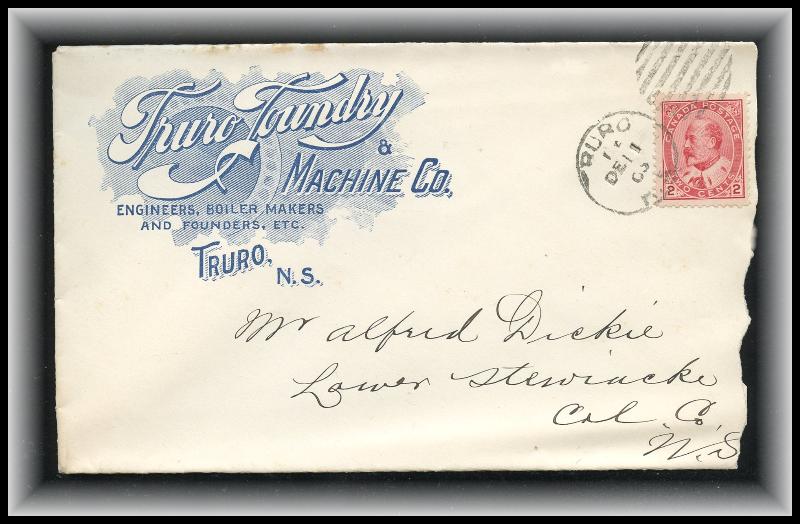 Truro Foundry
&
MACHINE CO.
ENGINEERS, BOILER MAKERS
AND FOUNDERS, ETC.
TRURO,
N.S.
CANADA POSTAGE
2 CENTS 2
TRURO
DE 11
03
Mr Alfred Dickie
Lower Stewiacke
Col. Co.
N.S